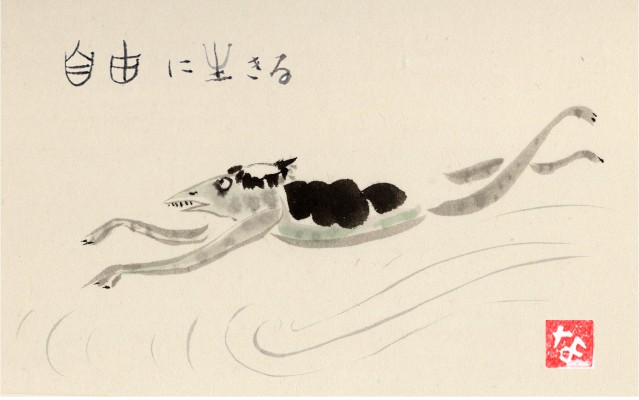 自由に生きる
な